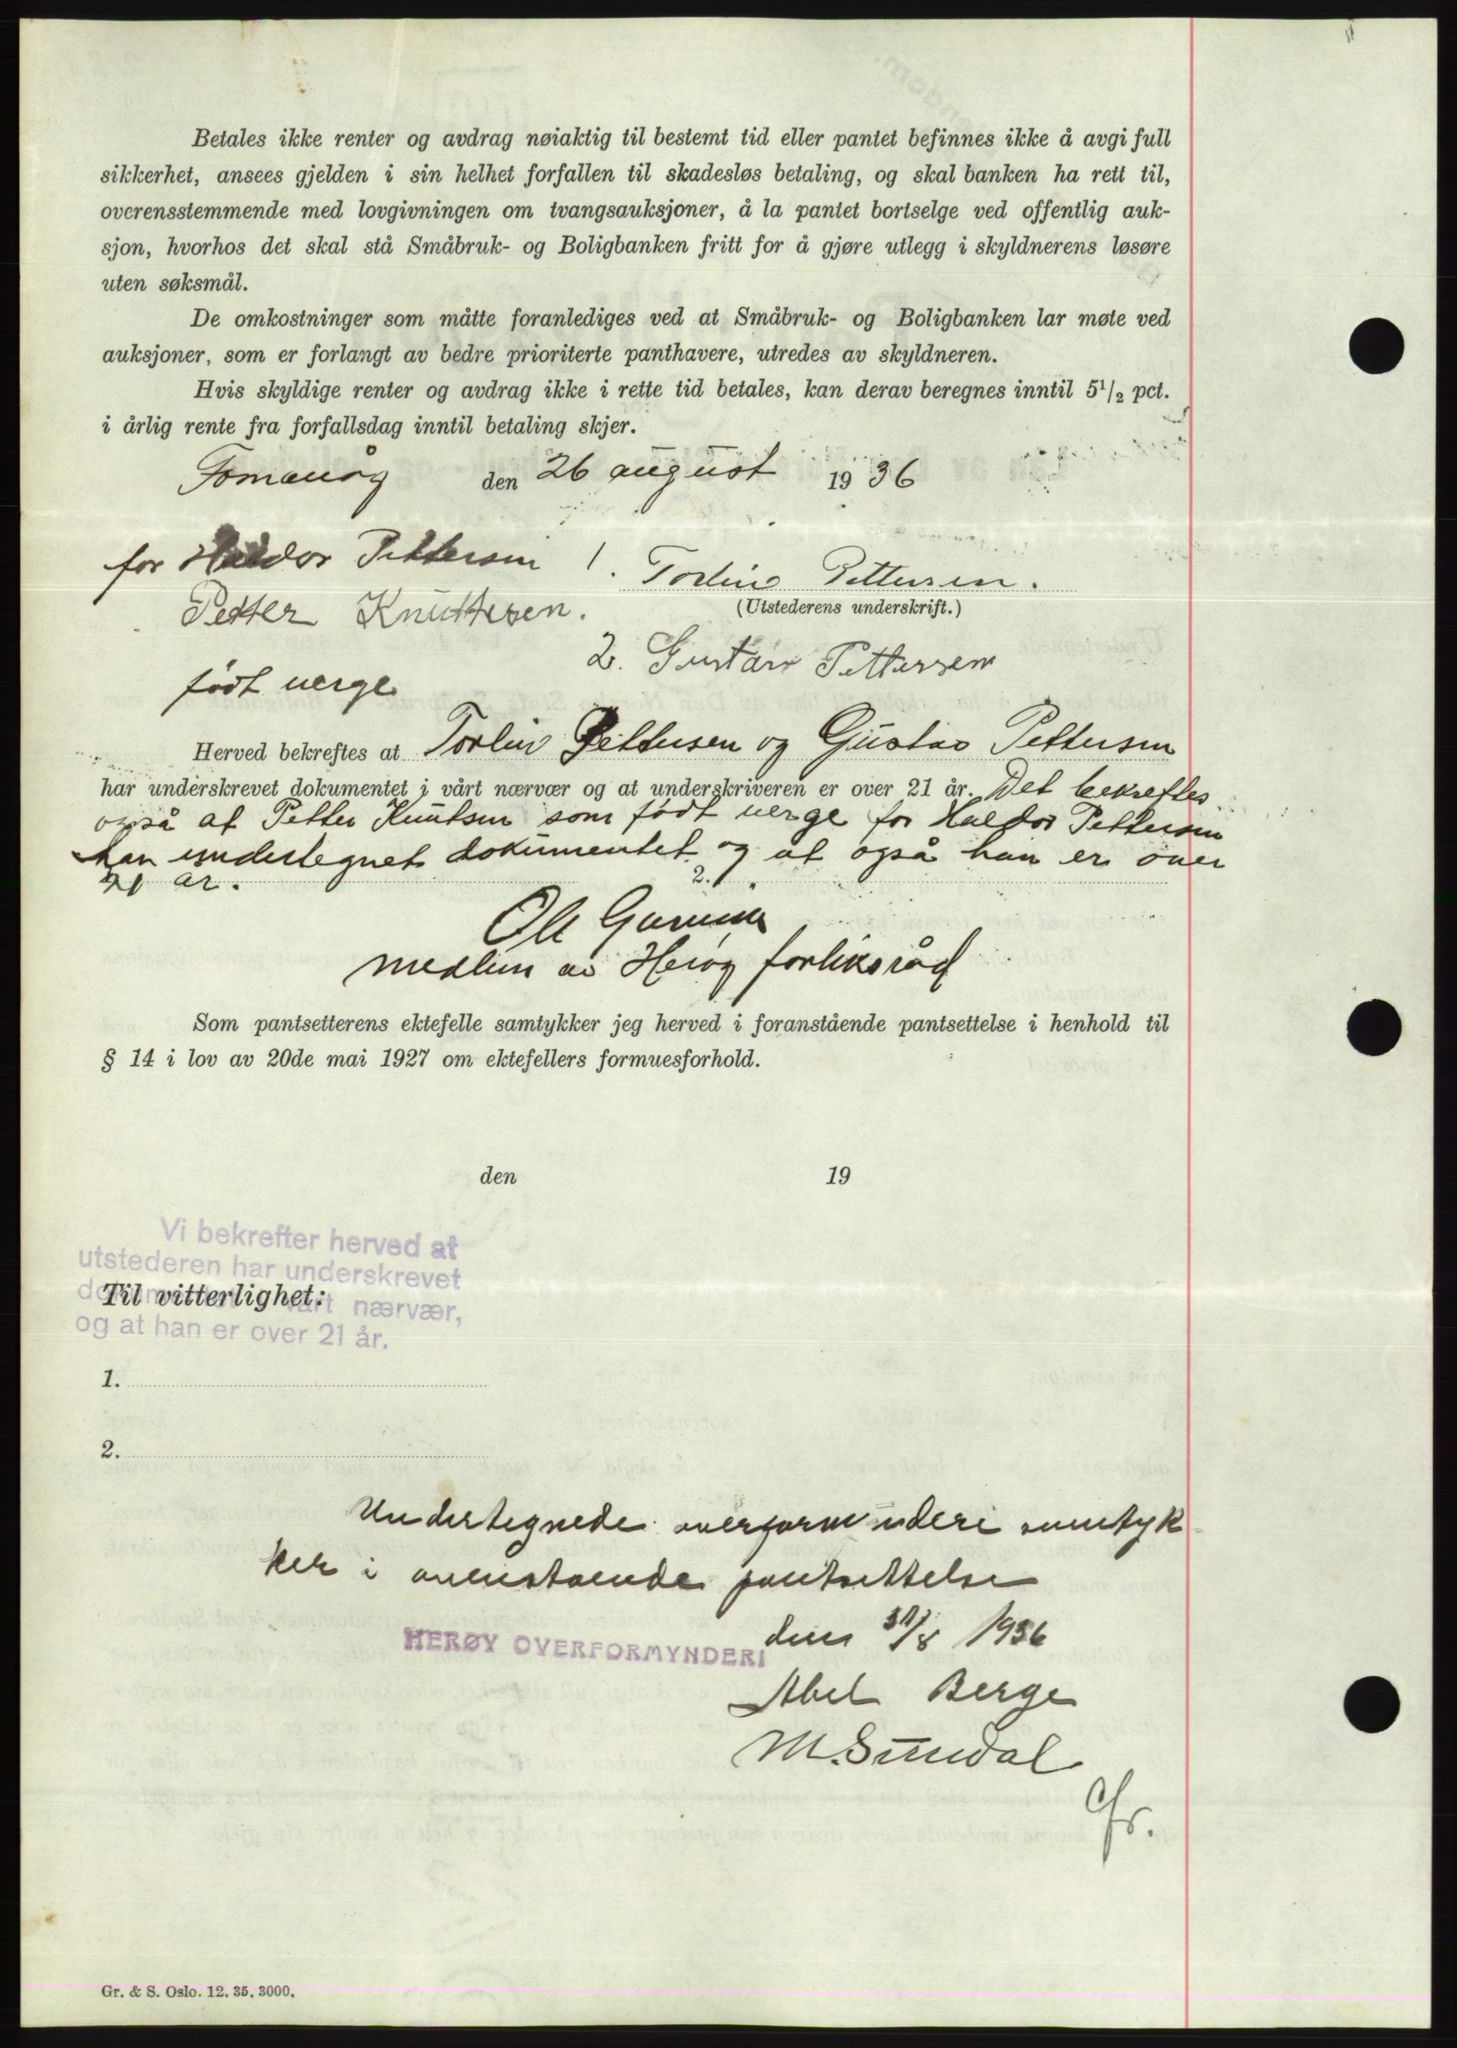 Betales ikke renter og avdrag nøiaktig til bestemt tid eller pantet befinnes ikke å avgi full
sikkerhet, ansees gjelden i sin helhet forfallen til skadesløs betaling, og skal banken ha rett til,
overensstemmende med lovgivningen om tvangsauksjoner, å la pantet bortselge ved offentlig auk-
sjon, hvorhos det skal stå Småbruk- og Boligbanken fritt for å gjøre utlegg i skyldnerens løsøre
uten søksmål.
De omkostninger som måtte foranlediges ved at Småbruk- og Boligbanken lar møte ved
auksjoner, som er forlangt av bedre prioriterte panthavere, utredes av skyldneren.
Hvis skyldige renter og avdrag ikke i rette tid betales, kan derav beregnes inntil 5 1/2 pct.
i årlig rente fra forfallsdag inntil betaling skjer.
den 26 august 1936
for Haldor Pettersen 1. Pettersen.
Petter Knutsen. (Utstederens underskrift.)
2. Gustav Pettersen
født verge
Herved bekreftes at Pettersen og Gustav Pettersen
har underskrevet dokumentet i vårt nærvær og at underskriveren er over 21 år. Det bekreftes
også at Petter Knutsen som født verge for Haldor Pettersen
har undertegnet dokumentet og at også han er over
21 år.
2.
Ole
medlem av Herøy forliksråd
Som pantsetterens ektefelle samtykker jeg herved i foranstående pantsettelse i henhold til
§ 14 i lov av 20de mai 1927 om ektefellers formuesforhold.
den 19
Vi bekrefter herved at
utstederen har underskrevet
dokumentet i vårt nærvær,
og at han er over 21 år.
Til vitterlighet:
1.
2.
Undertegnede overformynderi samtyk
ker i ovenstående pantsettelse
HERØY OVERFORMYNDERI den 31/8 1936
Abel Berge
M. Sundal
Gr. & S. Oslo. 12. 35. 3000.